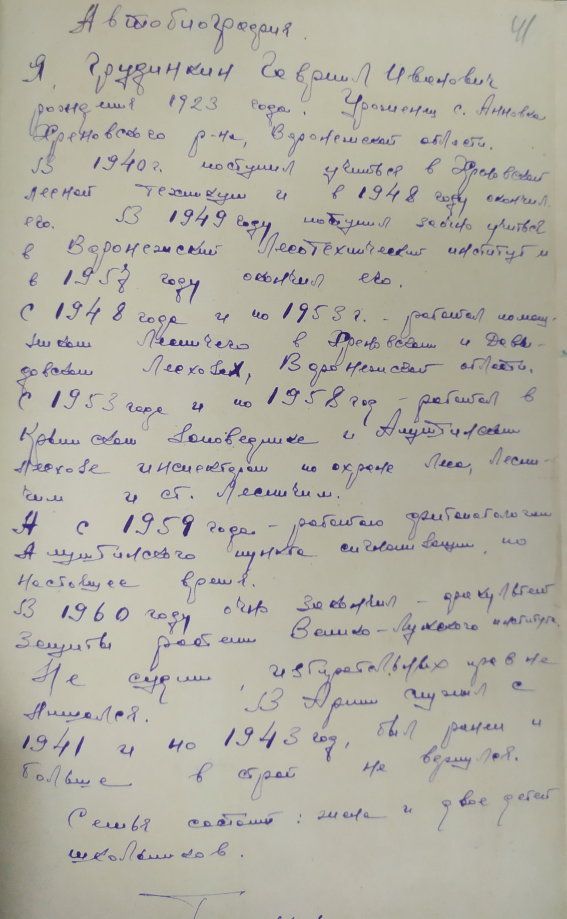 41
Автобиография.
Я, Грудинкин Гавриил Иванович
рождения 1923 года. Уроженец с. Анновка
Хреновского р-на, Воронежской области.
В 1940 г. поступил учиться в Хреновской
лесной техникум и в 1948 году окончил
его. В 1949 году поступил заочно учиться
в Воронежский Лесотехнический институт и
в 1957 году окончил его.
С 1948 года и по 1953 г. - работал помощ-
ником Лесничего в Хреновском и Давы-
довском Лесхозах, Воронежской области.
С 1953 года и по 1958 год - работал в
Крымском Заповеднике и Алуштинском
лесхозе инспектором по охране Леса, Лесни-
чим и ст. Лесничим.
А с 1959 года - работаю фитопатологом
Алуштинского пункта сигнализации, по
настоящее время.
В 1960 году очно закончил - факультет
Защиты растений Велико-Лукского института.
Не судим, избирательных прав не
лишался. В Армии служил с
1941 и по 1943 год, был ранен и
больше в строй не вернулся.
Семья состоит: жена и двое детей
школьников.